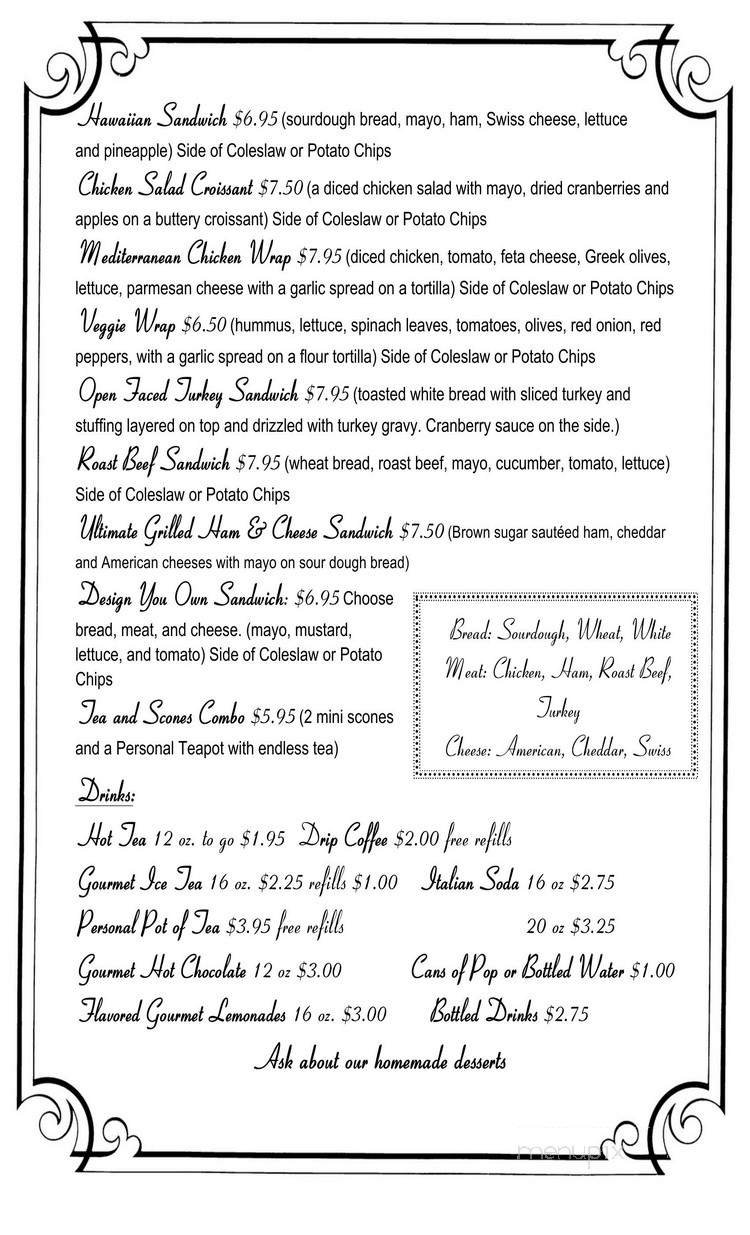 Hawaiian Sandwich $6.95 (sourdough bread, mayo, ham, Swiss cheese, lettuce
and pineapple) Side of Coleslaw or Potato Chips
Chicken Salad Croissant $7.50 (a diced chicken salad with mayo, dried cranberries and
apples on a buttery croissant) Side of Coleslaw or Potato Chips
Mediterranean Chicken Wrap $7.95 (diced chicken, tomato, feta cheese, Greek olives,
lettuce, parmesan cheese with a garlic spread on a tortilla) Side of Coleslaw or Potato Chips
Veggie Wrap $6.50 (hummus, lettuce, spinach leaves, tomatoes, olives, red onion, red
peppers, with a garlic spread on a flour tortilla) Side of Coleslaw or Potato Chips
Open Faced Turkey Sandwich $7.95 (toasted white bread with sliced turkey and
stuffing layered on top and drizzled with turkey gravy. Cranberry sauce on the side.)
Roast Beef Sandwich $7.95 (wheat bread, roast beef, mayo, cucumber, tomato, lettuce)
Side of Coleslaw or Potato Chips
Ultimate Grilled Ham & Cheese Sandwich $7.50 (Brown sugar sautéed ham, cheddar
and American cheeses with mayo on sour dough bread)
Design You Own Sandwich: $6.95 Choose
bread, meat, and cheese. (mayo, mustard,
lettuce, and tomato) Side of Coleslaw or Potato
Chips
Tea and Scones Combo $5.95 (2 mini scones
and a Personal Teapot with endless tea)
Bread: Sourdough, Wheat, White
Meat: Chicken, Ham, Roast Beef,
Turkey
Cheese: American, Cheddar, Swiss
Drinks:
Hot Tea 12 oz. to go $1.95 Drip Coffee $2.00 free refills
Gourmet Ice Tea 16 oz. $2.25 refills $1.00 Italian Soda 16 oz $2.75
Personal Pot of Tea $3.95 free refills 20 oz $3.25
Gourmet Hot Chocolate 12 oz $3.00 Cans of Pop or Bottled Water $1.00
Flavored Gourmet Lemonades 16 oz. $3.00 Bottled Drinks $2.75
Ask about our homemade desserts
menupix